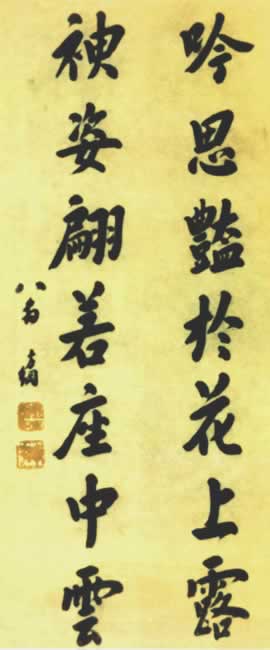 吟思豔於花上露
姿翩若座中雲
八 方綱